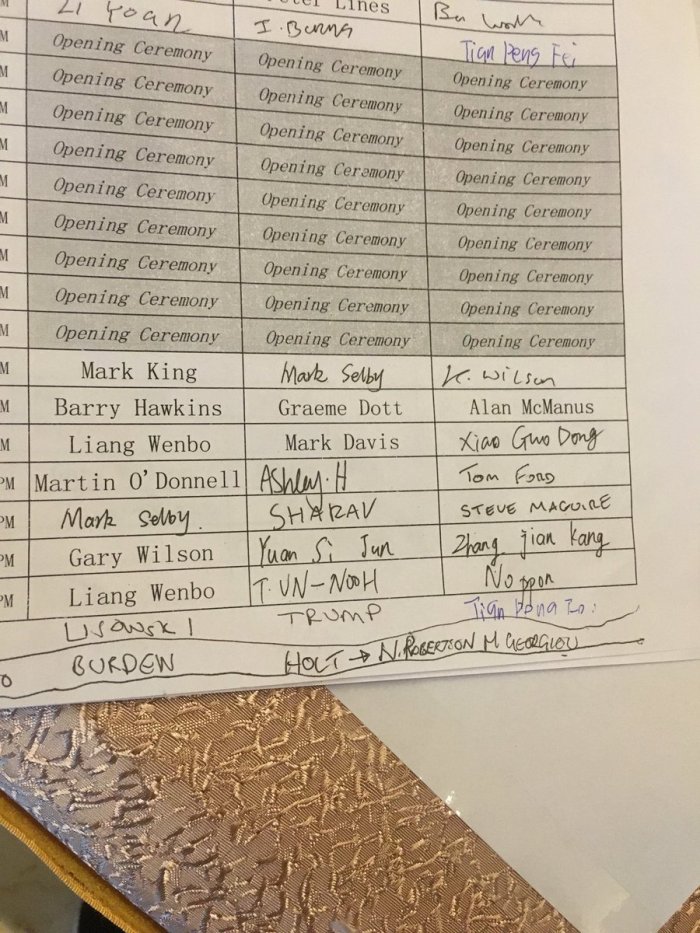 M Li Yuan Peter Lines
I. Burns
M Opening Ceremony Opening Ceremony Tian Peng Fei
M Opening Ceremony Opening Ceremony Opening Ceremony
M Opening Ceremony Opening Ceremony Opening Ceremony
M Opening Ceremony Opening Ceremony Opening Ceremony
M Opening Ceremony Opening Ceremony Opening Ceremony
M Opening Ceremony Opening Ceremony Opening Ceremony
M Opening Ceremony Opening Ceremony Opening Ceremony
M Opening Ceremony Opening Ceremony Opening Ceremony
M Opening Ceremony Opening Ceremony Opening Ceremony
M Mark King Mark Selby K. Wilson
M Barry Hawkins Graeme Dott Alan McManus
M Liang Wenbo Mark Davis Xiao Guo Dong
PM Martin O'Donnell Ashley.H Tom FORD
PM Mark Selby. SHARAV STEVE MAGUIRE
PM Gary Wilson Yuan Si Jun Zhang jian kang
PM Liang Wenbo T. UN-NOOH Noppon
LISOWSKI TRUMP Tian Peng
O BURDEN HOLT → N. ROBERTSON M GEORGIOU